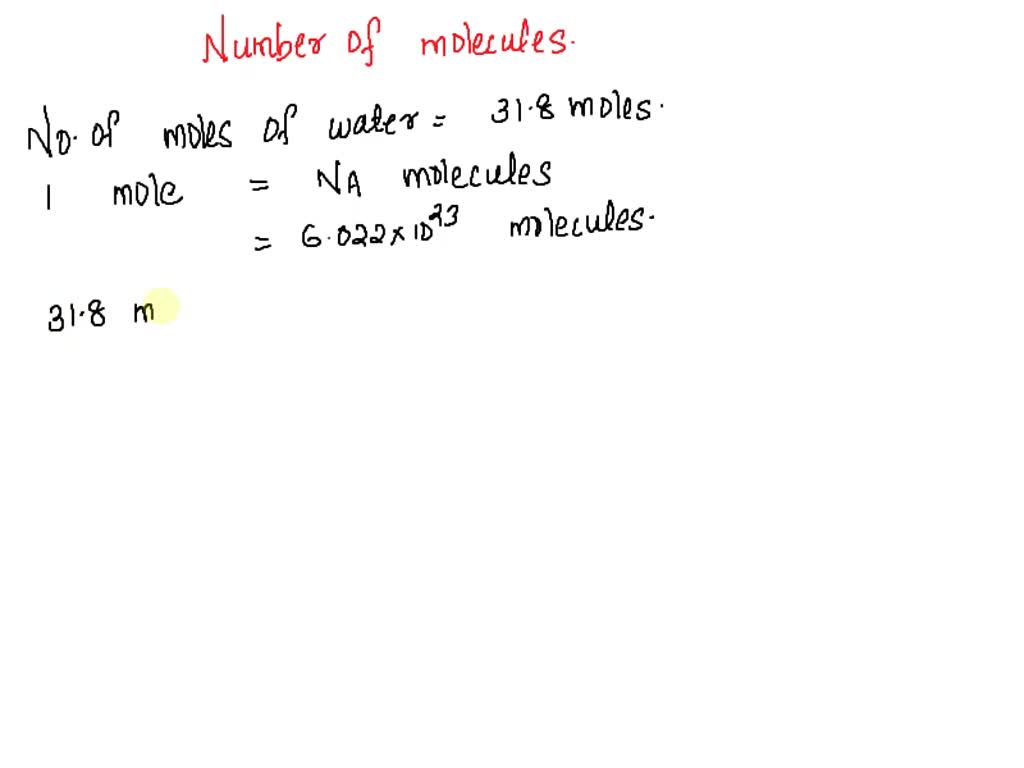 Number of molecules.
No. of moles of water = 31.8 moles.
1 mole = NA molecules
= 6.022 × 10²³ molecules.
31.8 m